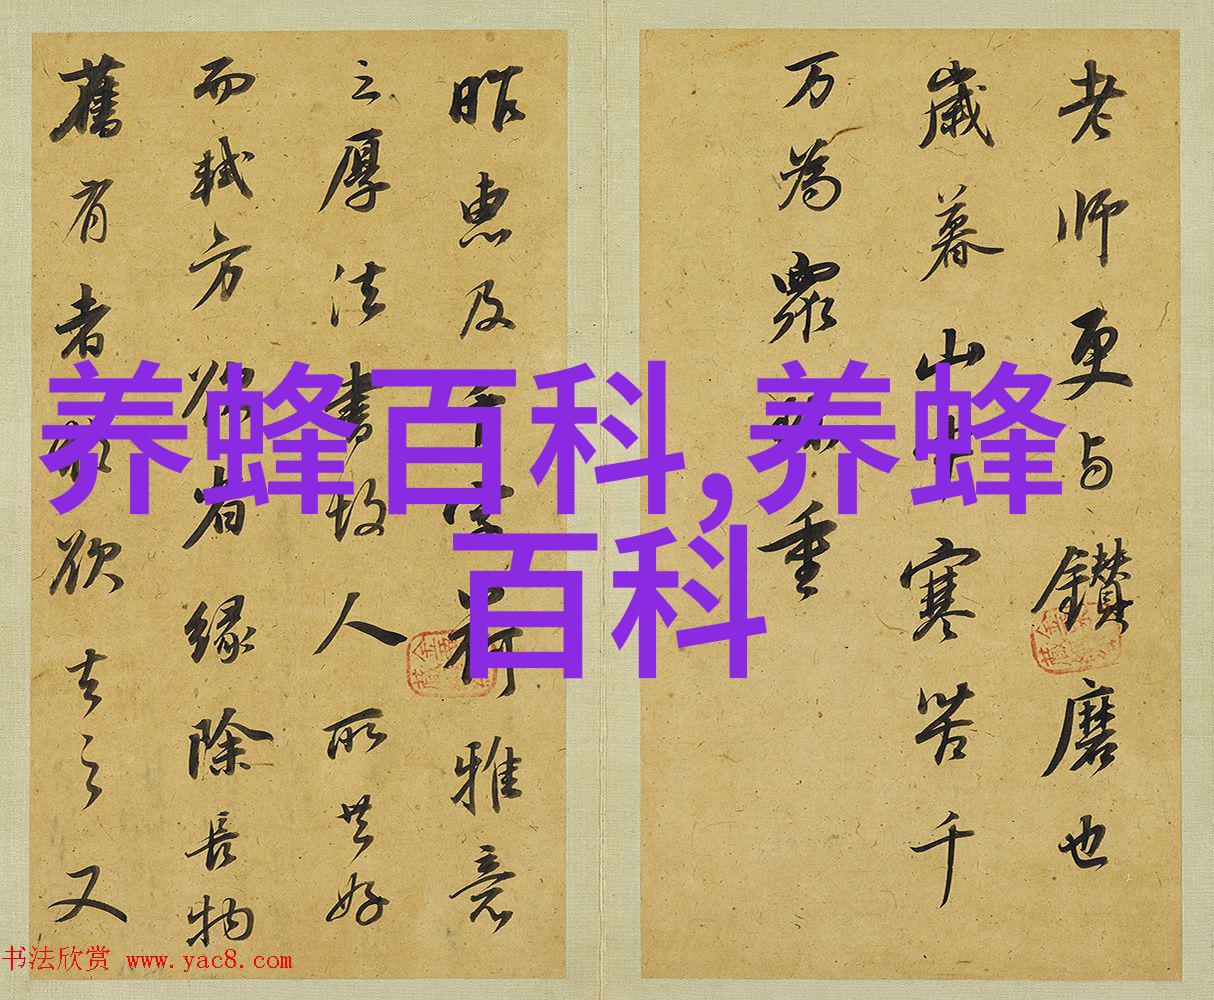 老師更与鑚磨也
歲暮山中寒苦千
万為眾 重
昨惠及 荷雅意
之厚法書故人所共好
而軾方 省緣除長物
舊有者 欲去之又
养蜂百科,养蜂
百科
书法欣赏 www.yac8.com